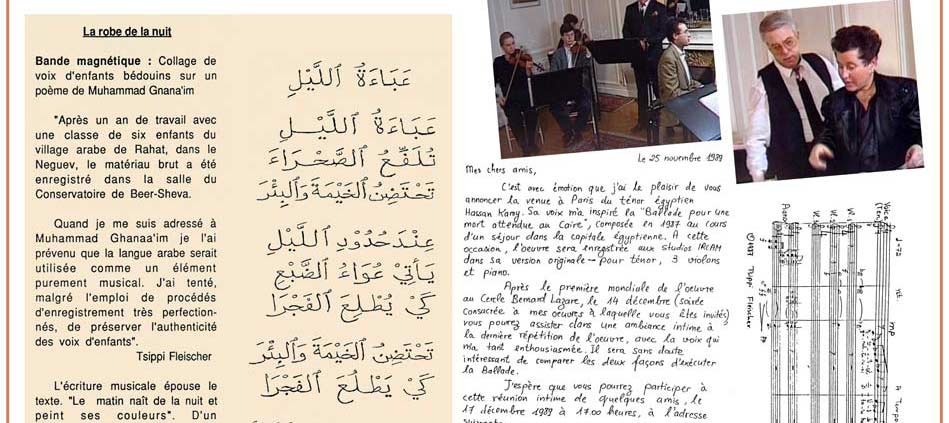 La robe de la nuit
Bande magnétique : Collage de
voix d'enfants bédouins sur un
poème de Muhammad Gnana'im
"Après un an de travail avec
une classe de six enfants du
village arabe de Rahat, dans le
Neguev, le matériau brut a été
enregistré dans la salle du
Conservatoire de Beer-Sheva.
Quand je me suis adressé à
Muhammad Ghanaa'im je l'ai
prévenu que la langue arabe serait
utilisée comme un élément
purement musical. J'ai tenté,
malgré l'emploi de procédés
d'enregistrement très perfection-
nés, de préserver l'authenticité
des voix d'enfants".
Tsippi Fleischer
L'écriture musicale épouse le
texte. "Le matin naît de la nuit et
peint ses couleurs". D'un
عَبَاءَةُ اللَّيْلِ
عَبَاءَةُ اللَّيْلِ
تُلَفِّعُ الصَّحْرَاءَ
تَحْتَضِنُ الخَيْمَةَ وَالبِئْرَ
عِنْدَ حُدُودِ اللَّيْلِ
يَأْتِي عُوَاءُ الضَّبْعِ
كَيْ يُطْلِعَ الفَجْرَا
تَحْتَضِنُ الخَيْمَةَ وَالبِئْرَ
كَيْ يَطْلُعَ الفَجْرَا
Le 25 novembre 1989
Mes chers amis,
C'est avec émotion que j'ai le plaisir de vous
annoncer la venue à Paris du ténor égyptien
Hassan Kamy. Sa voix m'a inspiré la "Ballade pour une
mort attendue au Caire", composée en 1987 au cours
d'un séjour dans la capitale égyptienne. A cette
occasion, l'oeuvre sera enregistrée aux studios IRCAM
dans sa version originale - pour ténor, 3 violons
et piano.
Après le première mondiale de l'oeuvre
au Cercle Bernard Lazare, le 14 décembre (soirée
consacrée à mes oeuvres à laquelle vous êtes invités)
vous pourrez assister dans une ambiance intime à
la dernière répétition de l'oeuvre, avec la voix qui
m'a tant enthousiasmée. Il sera sans doute
intéressant de comparer les deux façons d'exécuter
la Ballade.
J'espère que vous pourrez participer à
cette réunion intime de quelques amis, le
17 décembre 1989 à 17.00 heures, à l'adresse
suivante
Voice
(Ten.)
Piano
♩=72
rit.
mp
A Tempo
© 1987 Tsippi Fleischer